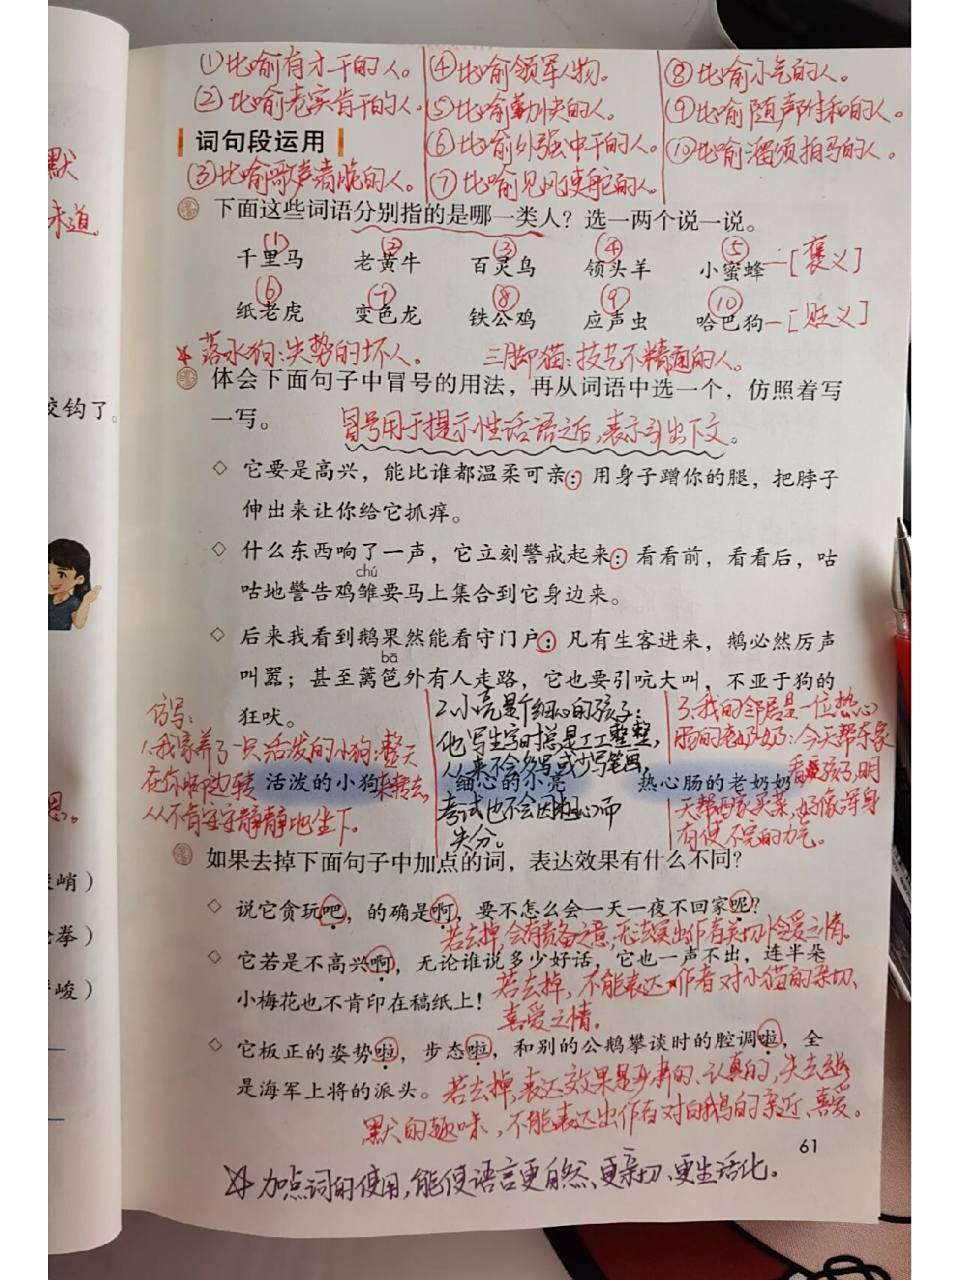 ①比喻有才干的人。
②比喻老实肯干的人。
③比喻歌声清脆的人。
④比喻领军人物。
⑤比喻勤快的人。
⑥比喻外强中干的人。
⑦比喻见风使舵的人。
⑧比喻小气的人。
⑨比喻随声附和的人。
⑩比喻溜须拍马的人。
词句段运用
下面这些词语分别指的是哪一类人？选一两个说一说。
① ② ③ ④ ⑤
千里马 老黄牛 百灵鸟 领头羊 小蜜蜂—[褒义]
⑥ ⑦ ⑧ ⑨ ⑩
纸老虎 变色龙 铁公鸡 应声虫 哈巴狗—[贬义]
落水狗：失势的坏人。 三脚猫：技艺不精通的人。
体会下面句子中冒号的用法，再从词语中选一个，仿照着写
一写。
冒号用于提示性话语之后，表示引出下文。
◇ 它要是高兴，能比谁都温柔可亲：用身子蹭你的腿，把脖子
伸出来让你给它抓痒。
◇ 什么东西响了一声，它立刻警戒起来：看看前，看看后，咕
chú
咕地警告鸡雏要马上集合到它身边来。
◇ 后来我看到鹅果然能看守门户：凡有生客进来，鹅必然厉声
bā
叫嚣；甚至篱笆外有人走路，它也要引吭大叫，不亚于狗的
狂吠。
仿写：
1.我家养了一只活泼的小狗：整天
在你脚边转来转去，
从不肯安安静静地坐下。
2.小亮是个细心的孩子：
他写生字时总是工工整整，
从来不会多写或少写笔画，
考试也不会因粗心而
失分。
3.我的邻居是一位热心
肠的老奶奶：今天帮东家
看孩子，明
天帮西家买菜，好像浑身
有使不完的力气。
活泼的小狗 细心的小亮 热心肠的老奶奶
如果去掉下面句子中加点的词，表达效果有什么不同？
◇ 说它贪玩吧，的确是啊，要不怎么会一天一夜不回家呢？
若去掉，会有责备之意，无法突出作者亲切怜爱之情。
◇ 它若是不高兴啊，无论谁说多少好话，它也一声不出，连半朵
小梅花也不肯印在稿纸上！
若去掉，不能表达作者对小猫的亲切、
喜爱之情。
◇ 它板正的姿势啦，步态啦，和别的公鹅攀谈时的腔调啦，全
是海军上将的派头。
若去掉，表达效果是严肃的、认真的，失去幽
默的趣味，不能表达出作者对白鹅的亲近、喜爱。
61
加点词的使用，能使语言更自然、更亲切、更生活化。
默
味道。
咬钩了。
峭）
拳）
峻）